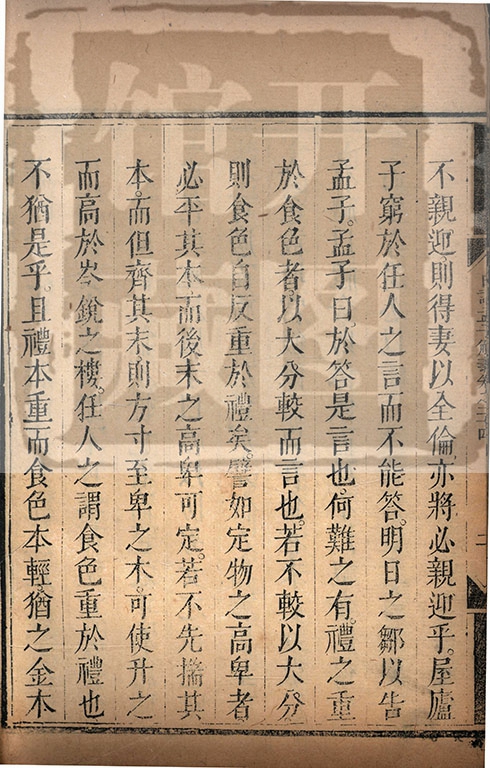 不親迎。則得妻以全倫。亦將必親迎乎。屋廬
子窮於任人之言而不能答。明日之鄒以告
孟子。孟子曰。於答是言也。何難之有。禮之重
於食色者。以大分較而言也。若不較以大分
則食色自反重於禮矣。譬如定物之高卑者
必平其本而後末之高卑可定。若不先揣其
本。而但齊其末。則方寸至卑之木。可使升之
而高於岑銳之樓。任人之謂食色重於禮也
不猶是乎。且禮本重而食色本輕。猶之金木
二